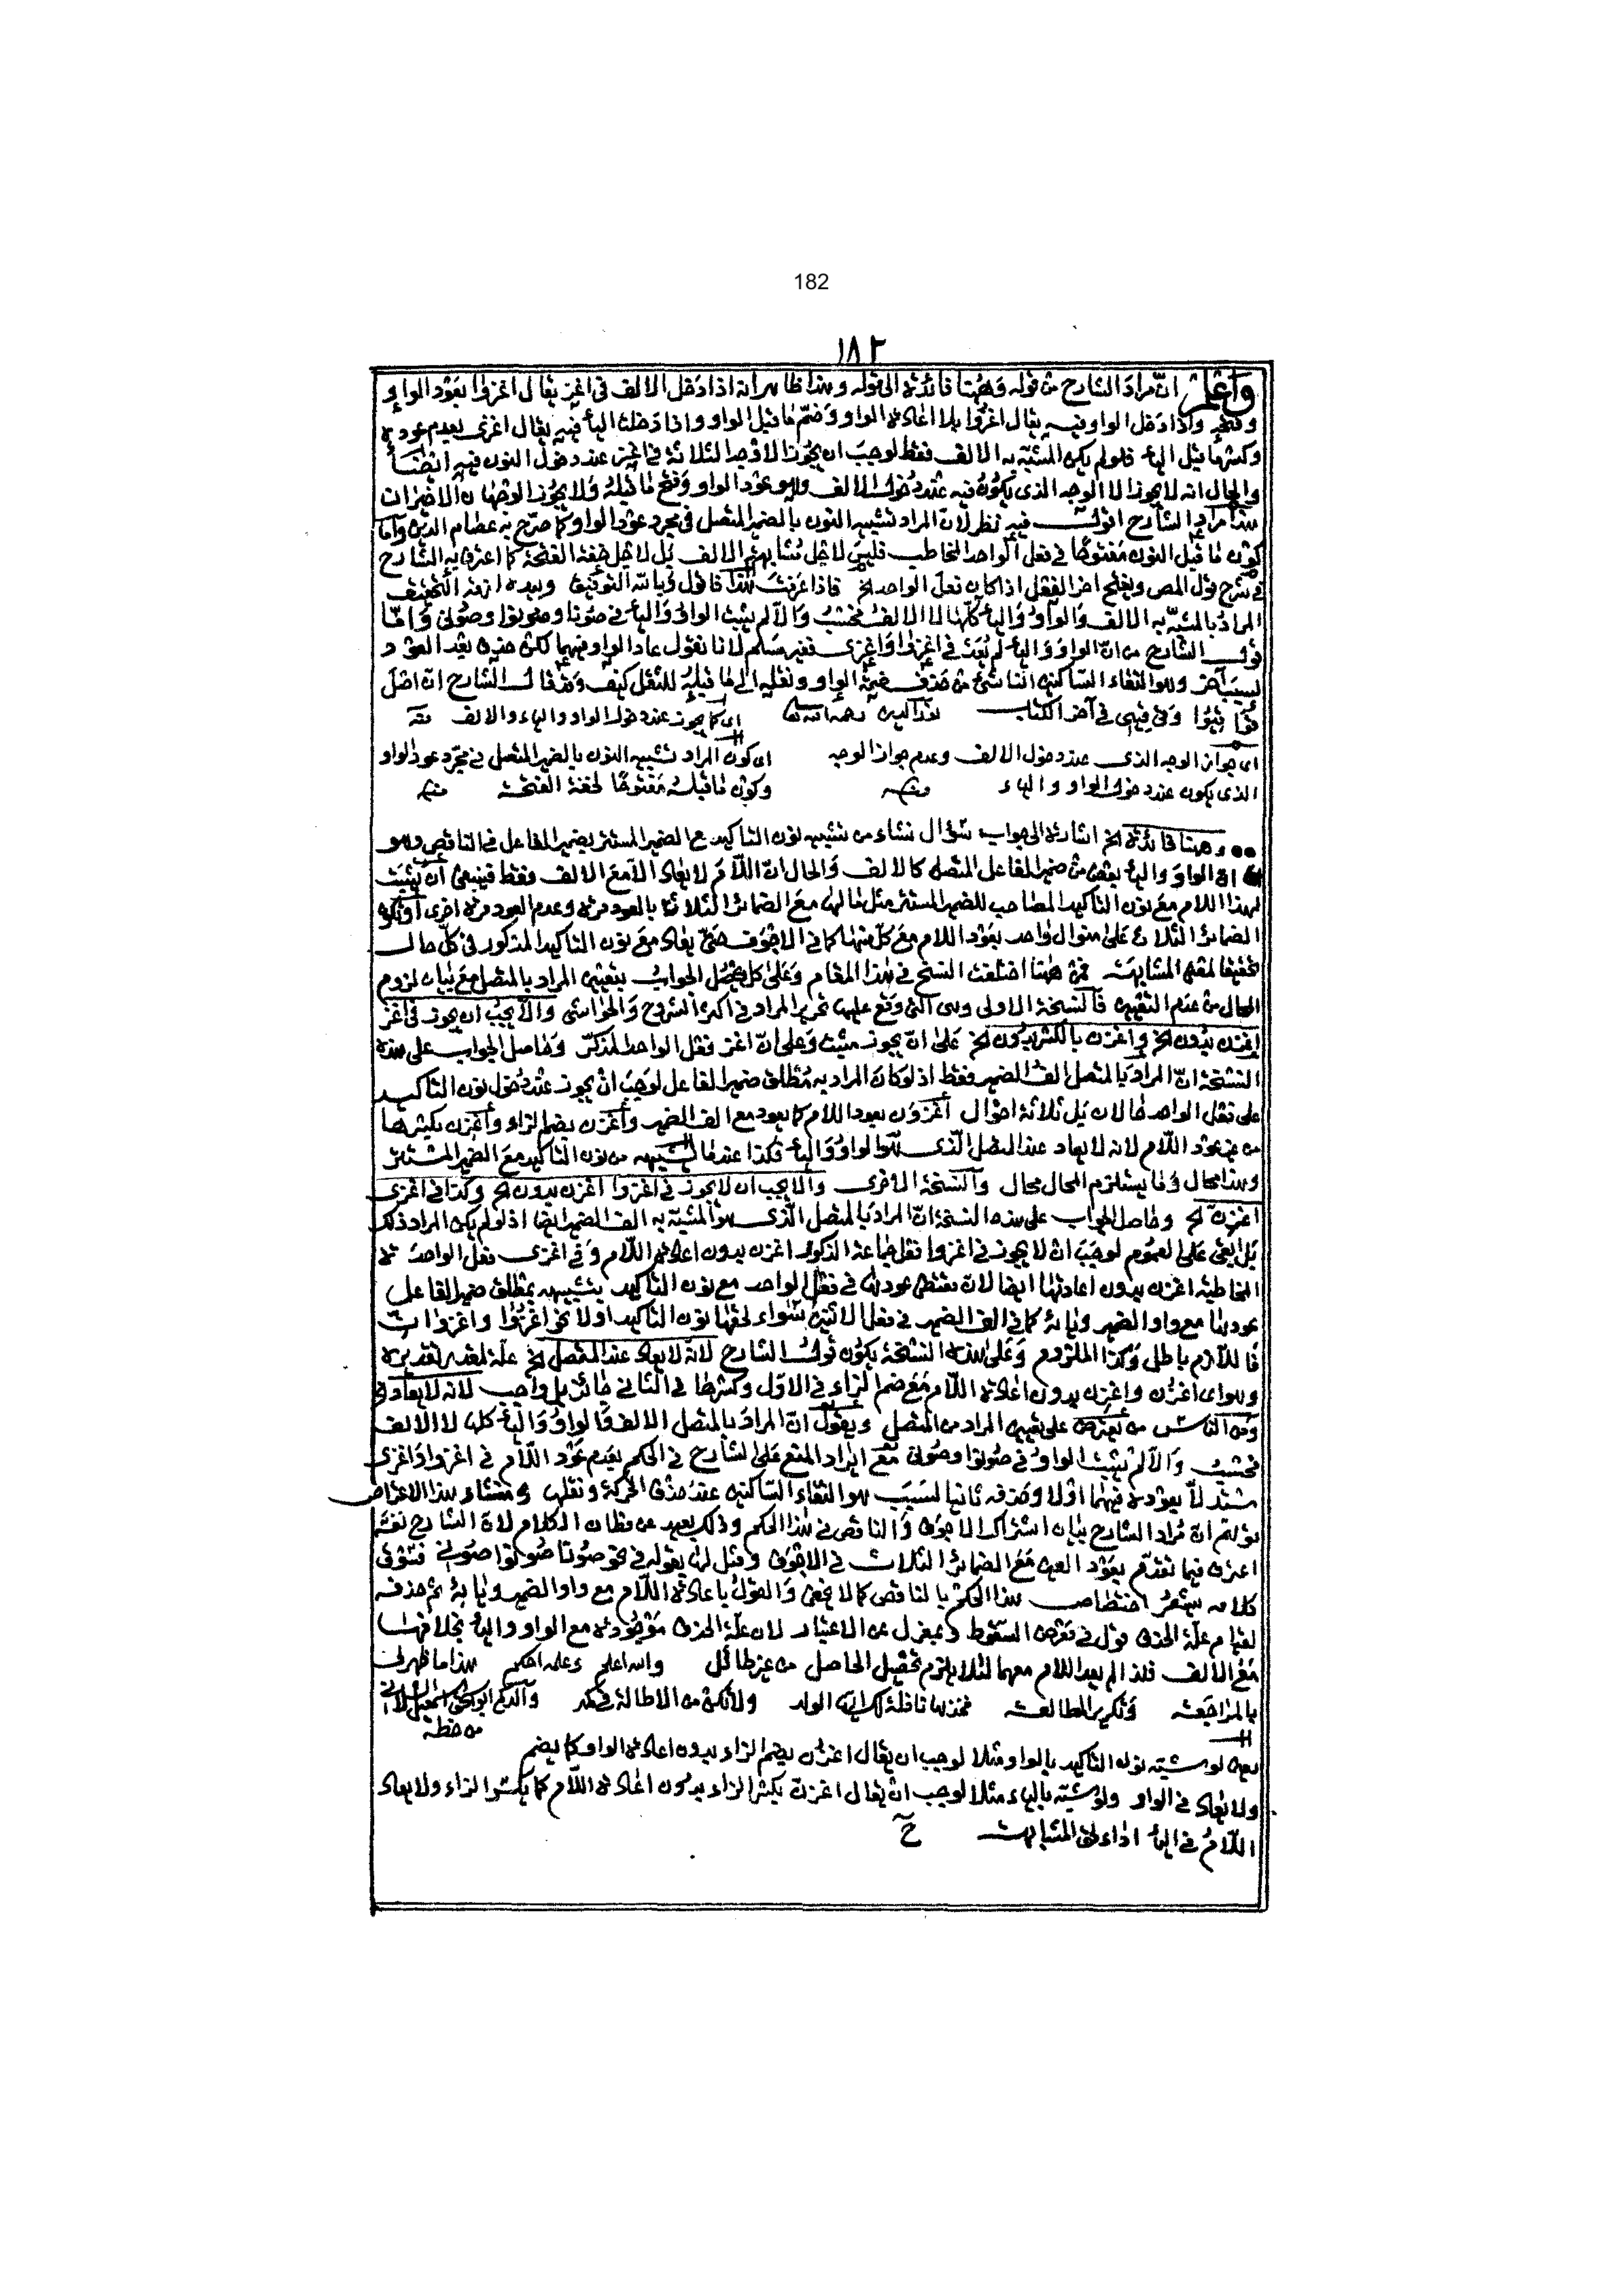 182
١٨٢
واعلم ان مراد الشارح من قوله وههنا فائدة الى قوله وهذا ظاهر انه اذا دخل الالف في اغز يقال اغزوا بعود الواو
وفتحه واذا دخل الواو فيه يقال اغزوا بلا اعادة الواو وضم ما قبل الواو واذا دخلت الياء فيه يقال اغزى بعدم عوده
وكسر ما قبل الياء فلو لم يكن المشبه به الالف فقط لوجب ان يجوز الاوجه الثلاثة في اغز عند دخول النون فيه ايضا
والحال انه لا يجوز الا الوجه الذى يكون فيه عند دخول الالف وهو عود الواو وفتح ما قبله ولا يجوز الوجهان الاخيران
هذا مراد الشارح اقول فيه نظر لان المراد تشبيه النون بالضمير المتصل في مجرد عود الواو كما صرح به عصام الدين واما
كون ما قبل النون مفتوحا في فعل الواحد المخاطب فليس لاجل مشابهة الالف بل لاجل خفة الفتحة كما اعترف به الشارح
في شرح قول المص ويفتح اخر الفعل اذا كان فعل الواحد الخ فاذا عرفت هذا فاقول وبالله التوفيق وبيده ازمة التحقيق
المراد بالمشبه به الالف والواو والياء كلها لا الالف فحسب والا لم يثبت الواو والياء في صونا وصونوا وصونى واما
قول الشارح من ان الواو والياء لم يعد في اغزوا واغزى فغير مسلم لانا نقول عاد الواو فيهما لكن حذف بعد العود
لسبب اخر وهو التقاء الساكنين الناشئ من حذف ضمة الواو ونقله الى ما قبله للثقل كيف وقد قال الشارح ان اصل
في آخر الكتاب رحمه الله اى كما يجوز عند دخول الواو والياء والالف
اى جواز الوجه الذى عند دخول الالف وعدم جواز الوجه اى كون المراد تشبيه النون بالضمير المتصل في مجرد عود الواو
الذى يكون عند دخول الواو والياء منه وكون ما قبله مفتوحا لخفة الفتحة منه
وههنا فائدة الخ اشارة الى جواب سؤال نشاء من تشبيه نون التاكيد مع الضمير المستتر بضمير الفاعل في الناقص وهو
ان الواو والياء بعض من ضمير الفاعل المتصل كالالف والحال ان اللام لا يعاد الا مع الالف فقط فينبغى ان يثبت
لهذا اللام مع نون التاكيد المصاحب للضمير المستتر مثل ما لها مع الضمائر الثلاثة بالعود مرة وعدم العود مرة اخرى او يكون
الضمائر الثلاث على منوال واحد بعود اللام مع كل منها كما في الاجوف حتى يعاد مع نون التاكيد المذكور في كل حال
تحقيقا لمعنى المشابهة فمن ههنا اختلفت النسخ في هذا المقام وعلى كل يحصل الجواب بتعيين المراد بالمتصل مع بيان لزوم
المحال من عدم التعيين فالنسخة الاولى وهى التى وقع عليها تحرير المراد في اكثر الشروح والحواشى والا يجب ان يجوز في اغز
اغزن بدون الخ واغزن بالكسر بدون الخ على ان يجوز مثبت وعلى ان اغز فعل الواحد المذكر وحاصل الجواب على هذه
النسخة ان المراد بالمتصل الف الضمير فقط اذ لو كان المراد به مطلق ضمير الفاعل لوجب ان يجوز عند دخول نون التاكيد
على فعل الواحد ثلاثة احوال اغزون بعود اللام كما يعود مع الف الضمير واغزن بضم الزاء واغزن بكسرها
من غير عود اللام لانه لا يعاد عند المتصل الذى هو الواو والياء فكذا عندما يشبهه من نون التاكيد مع الضمير المستتر
وهذا محال وما يستلزم المحال محال والنسخة الاخرى والا يجب ان لا يجوز في اغزوا اغزن بدون الخ وكذا في اغزى
اغزن الخ وحاصل الجواب على هذه النسخة ان المراد بالمتصل الذى هو المشبه به الف الضمير ايضا اذ لو لم يكن المراد ذلك
بل ابقى على العموم لوجب ان لا يجوز في اغزوا فعل جماعة الذكور اغزن بدون اعادة اللام وفي اغزى فعل الواحدة
المخاطبة اغزن بدون اعادتها ايضا لان مقتضى عودها في فعل الواحد مع نون التاكيد بتشبيهه بمطلق ضمير الفاعل
عودها مع واو الضمير ويائه كما في الف الضمير في فعل الاثنين سواء لحقها نون التاكيد اولا نحو اغزوا واغزوان
فاللازم باطل وكذا الملزوم وعلى هذه النسخة يكون قول الشارح لانه لا يعاد عند المتصل الخ علة لمقدر تقديره
وهو اى اغزن واغزن بدون اعادة اللام مع ضم الزاء في الاول وكسرها في الثانى جائز بل واجب لانه لا يعاد الخ
ومن الناس من يعترض على تعيين المراد من المتصل ويقول ان المراد بالمتصل الالف والواو والياء كلها لا الالف
فحسب والا لم يثبت الواو في صونوا وصونى مع ايراد المنع على الشارح في الحكم بعدم عود اللام في اغزوا واغزى
مستدلا بعوده فيهما اولا وحذفه ثانيا لسبب هو التقاء الساكنين عند حذف الحركة ونقلها ومنشاء هذا الاعتراض
توهم ان مراد الشارح بيان اشتراك الاجوف والناقص في هذا الحكم وذلك بعيد عن مظان الكلام لان الشارح نفسه
اعترف فيما تقدم بعود العين مع الضمائر الثلاث في الاجوف ومثل لها بقوله في نحو صونا صونوا صونى فسوق
كلامه يشعر اختصاص هذا الحكم بالناقص كما لا يخفى والقول باعادة اللام مع واو الضمير ويائه ثم حذفه
لقيام علة الحذف قول في معرض السقوط وبمعزل عن الاعتبار لان علة الحذف موجودة مع الواو والياء بخلافها
مع الالف فلذا لم يعد اللام معهما لئلا يلزم تحصيل الحاصل من غير طائل والله اعلم وعلمه احكم هذا ما ظهر لى
بالمراجعة وتكرير المطالعة فخذها نافلة لك ايها الولد ولا تكن من الاطالة في كمد
من خطه
يعنى لو شبه نون التاكيد بالواو مثلا لوجب ان يقال اغزن بضم الزاء بدون اعادة الواو كما يضم
ولا يعاد في الواو ولو شبه بالياء مثلا لوجب ان يقال اغزن بكسر الزاء بدون اعادة اللام كما يكسر الزاء ولا يعاد
اللام في الياء اداء لحق المشابهة ح